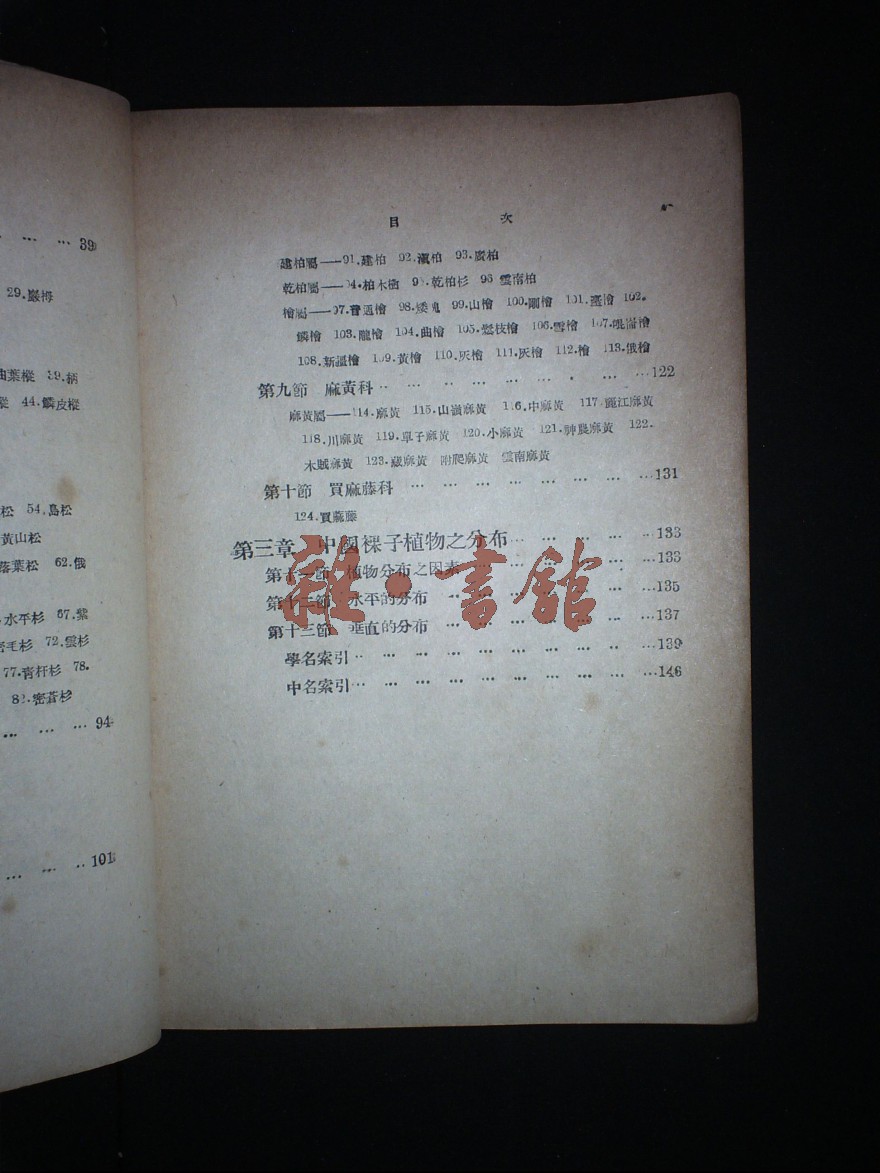 … … … 39
29.嚴栂
油葉樅 39.柄
樅 44.鱗皮樅
松 54.島松
黃山松
落葉松 62.俄
水平杉 67.紫
毛杉 72.雲杉
77.青杆杉 78.
82.密蒼杉
… … … … 94
… … … 101
目 次
建柏屬——91.建柏 92.瀛柏 93.嚴柏
乾柏屬——94.柏木樹 95.乾柏杉 96 雲南柏
檜屬——97.普通檜 98.矮鬼 99.山檜 100.剛檜 101.蓬檜 102.
鱗檜 103.龍檜 104.曲檜 105.鬆枝檜 106.雪檜 107.崑崙檜
108.新疆檜 109.黃檜 110.灰檜 111.灰檜 112.檜 113.俄檜
第九節 麻黃科 … … … … … … … … 122
麻黃屬——114.麻黃 115.山嶺麻黃 116.中麻黃 117.麗江麻黃
118.川麻黃 119.單子麻黃 120.小麻黃 121.神農麻黃 122.
木賊麻黃 123.藏麻黃 咐爬麻黃 雲南麻黃
第十節 買麻藤科 … … … … … … … … 131
124.買麻藤
第三章 中國裸子植物之分布 … … … … … 133
第十一節 植物分布之因素 … … … … … … 133
第十二節 水平的分布 … … … … … … … 135
第十三節 垂直的分布 … … … … … … … 137
學名索引 … … … … … … … … … 139
中名索引 … … … … … … … … … 146
雜·書館